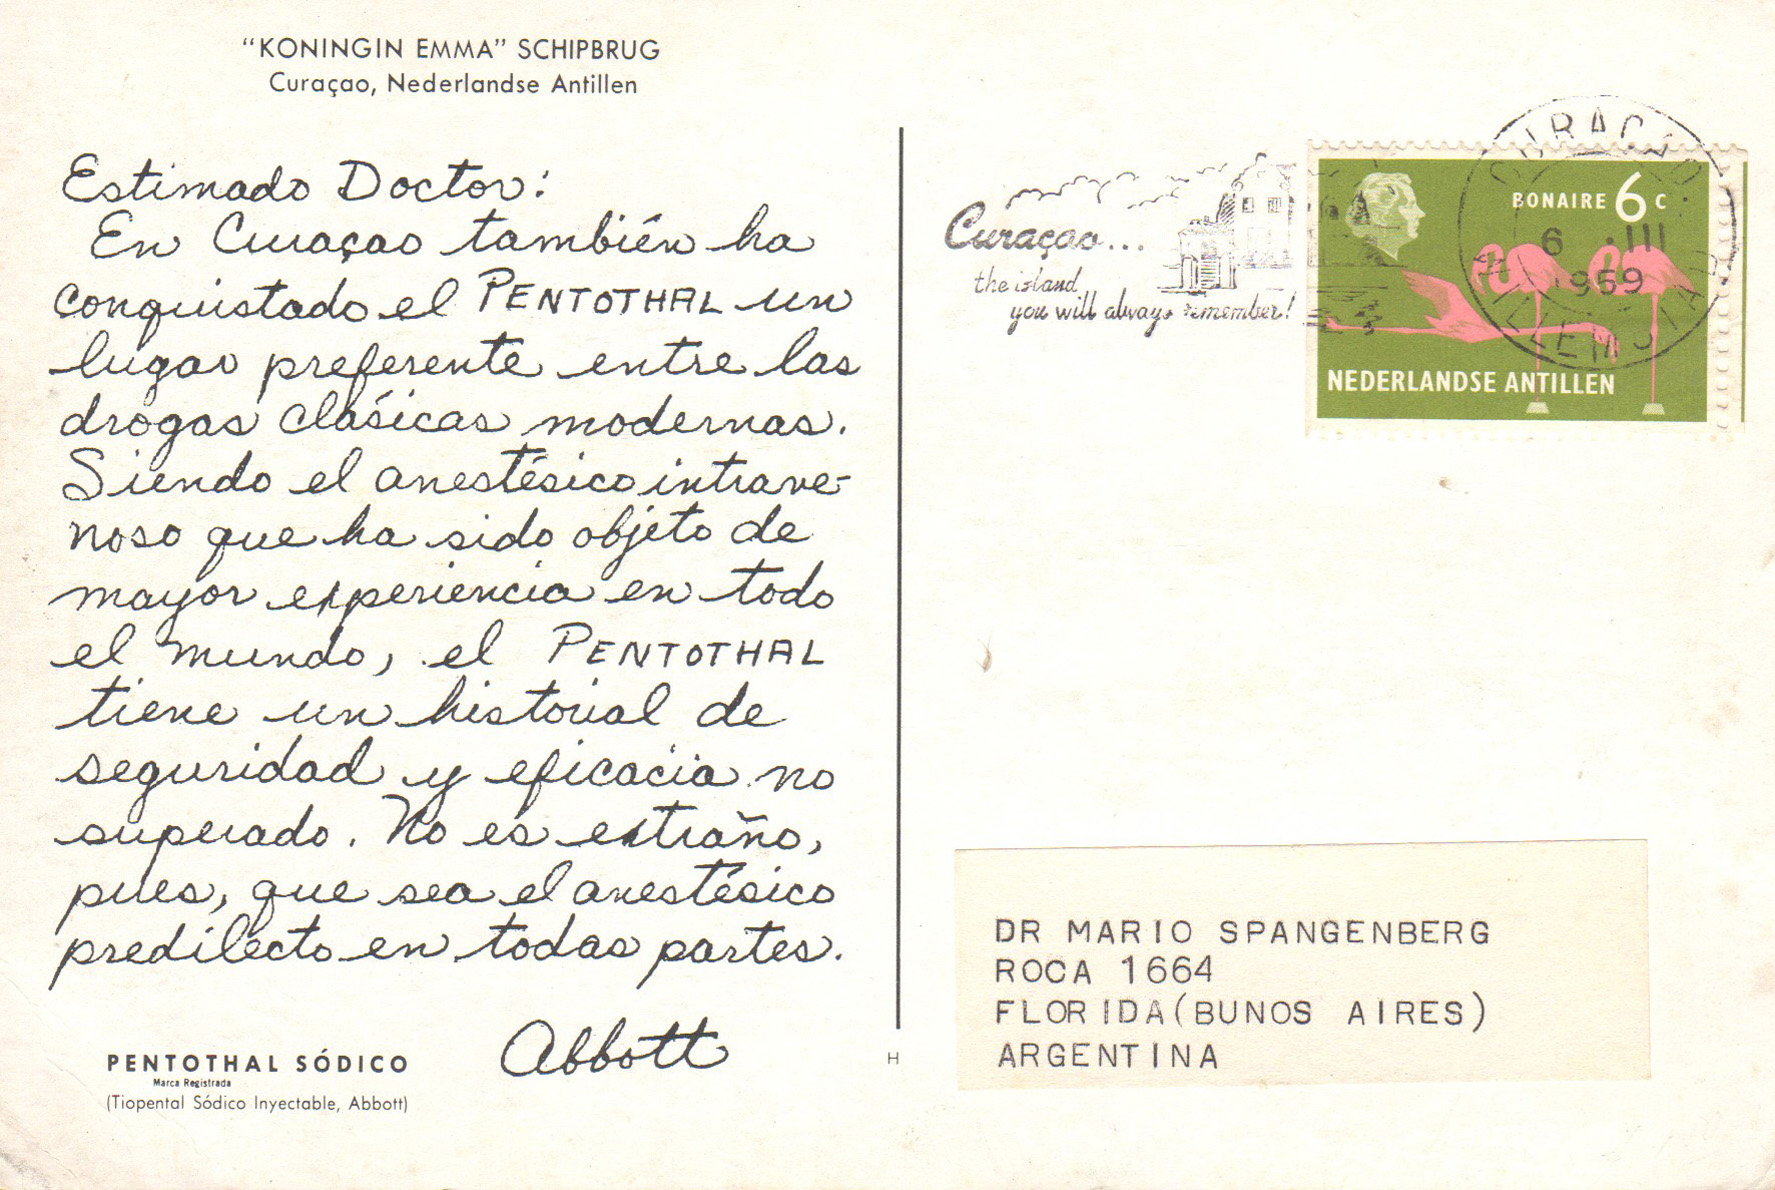 "KONINGIN EMMA" SCHIPBRUG
Curaçao, Nederlandse Antillen
Estimado Doctor:
En Curaçao también ha
conquistado el PENTOTHAL un
lugar preferente entre las
drogas clásicas modernas.
Siendo el anestésico intrave-
noso que ha sido objeto de
mayor experiencia en todo
el mundo, el PENTOTHAL
tiene un historial de
seguridad y eficacia no
superado. No es extraño,
pues, que sea el anestésico
predilecto en todas partes.
Abbott
PENTOTHAL SÓDICO
Marca Registrada
(Tiopental Sódico Inyectable, Abbott)
H
Curaçao...
the island
you will always remember!
CURAÇAO
6 .III
1959
BONAIRE 6 C
NEDERLANDSE ANTILLEN
DR MARIO SPANGENBERG
ROCA 1664
FLORIDA(BUNOS AIRES)
ARGENTINA